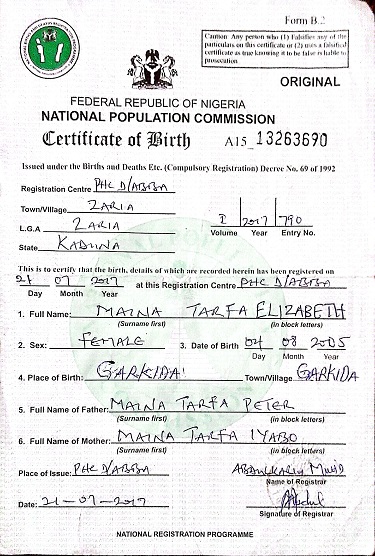 Form B.2
Caution: Any person who (1) Falsifies any of the
particulars on this certificate or (2) uses a falsified
certificate as true knowing it to be false is liable to
prosecution
ORIGINAL
FEDERAL REPUBLIC OF NIGERIA
NATIONAL POPULATION COMMISSION
Certificate of Birth A15_13263690
Issued under the Births and Deaths Etc. (Compulsory Registration) Decree No. 69 of 1992
Registration Centre PHC D/ABBA
Town/Village ZARIA
L.G.A ZARIA
I 2017 790
Volume Year Entry No.
State KADUNA
This is to certify that the birth, details of which are recorded herein has been registered on
21 07 2017 at this Registration Centre PHC D/ABBA
Day Month Year
1. Full Name: MAINA TARFA ELIZABETH
(Surname first) (in block letters)
2. Sex: FEMALE 3. Date of Birth 04 08 2005
Day Month Year
4. Place of Birth: GARKIDA Town/Village GARKIDA
5. Full Name of Father: MAINA TARFA PETER
(Surname first) (in block letters)
6. Full Name of Mother: MAINA TARFA IYABO
(Surname first) (in block letters)
Place of Issue: PHC D/ABBA ABDULKARIM
Name of Registrar
Date: 21-07-2017
Signature of Registrar
NATIONAL REGISTRATION PROGRAMME